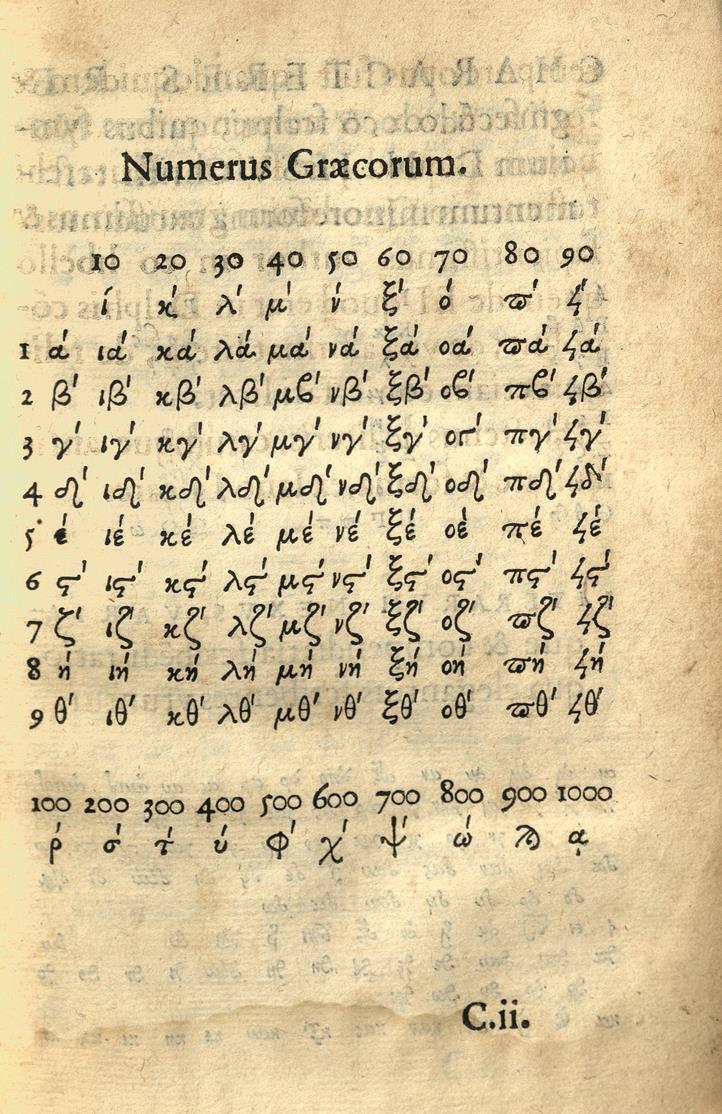 Numerus Græcorum.
10 20 30 40 50 60 70 80 90
ί κ' λ' μ' ν' ξ' ό ϖ' ϟ'
1 ά ιά κά λά μά νά ξά οά ϖά ϟά
2 β' ιβ' κβ' λβ' μϐ' νβ' ξβ' οϐ' πϐ' ϟβ'
3 γ' ιγ' κγ' λγ' μγ' νγ' ξγ' ογ' πγ' ϟγ'
4 δ' ιδ' κδ' λδ' μδ' νδ' ξδ' οδ' πδ' ϟδ'
5 έ ιέ κέ λέ μέ νέ ξέ οέ πέ ϟέ
6 ϛ' ιϛ' κϛ' λϛ' μϛ' νϛ' ξϛ' οϛ' πϛ' ϟϛ'
7 ζ' ιζ' κζ' λζ' μζ' νζ' ξζ' οζ' ϖζ' ϟζ'
8 ή ιή κή λή μή νή ξή οή ϖή ϟή
9 θ' ιθ' κθ' λθ' μθ' νθ' ξθ' οθ' ϖθ' ϟθ'
100 200 300 400 500 600 700 800 900 1000
ρ' σ' τ' ύ φ' χ' ψ' ώ ϡ α̣
C.ii.